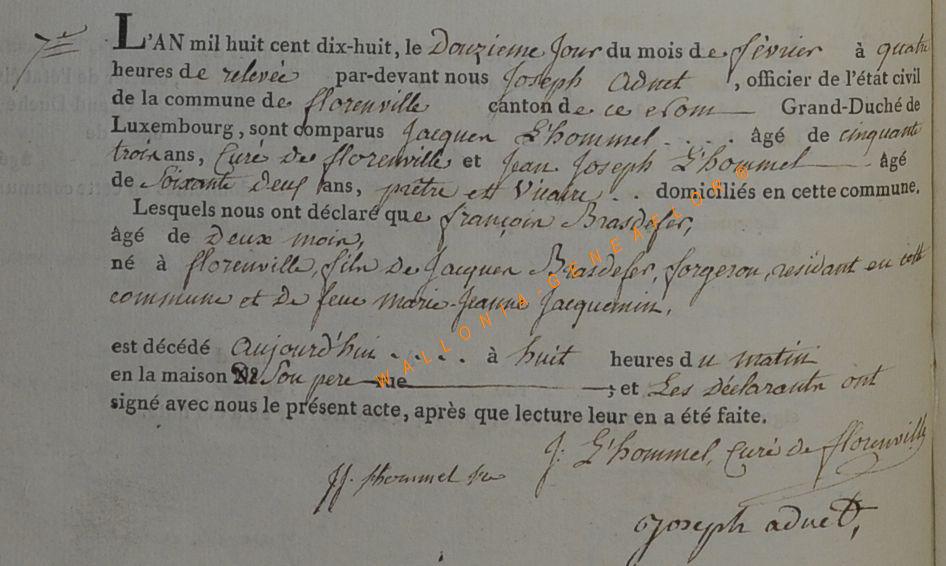 7me
L'AN mil huit cent dix-huit, le Douzieme Jour du mois de février à quatre
heures de relevée par-devant nous Joseph Adnet, officier de l'état civil
de la commune de florenville canton de ce nom Grand-Duché de
Luxembourg, sont comparus Jacques L'hommel .... âgé de cinquante
trois ans, Curé de florenville et Jean Joseph L'hommel âgé
de Soixante deux ans, prêtre et Vicaire .. domiciliés en cette commune.
Lesquels nous ont déclaré que françois Brasdefer,
âgé de Deux mois,
né à florenville, fils de Jacques Brasdefer, forgeron, residant en cette
commune et de feue marie-Jeanne Jacquemin,
est décédé aujourd'hui .... à huit heures du matin
en la maison De Son pere ; et Les Déclarants ont
signé avec nous le présent acte, après que lecture leur en a été faite.
J: L'hommel, Curé de florenville
JJ. lhommel
Joseph adnet,
WALLONIA-GENEALLOR®